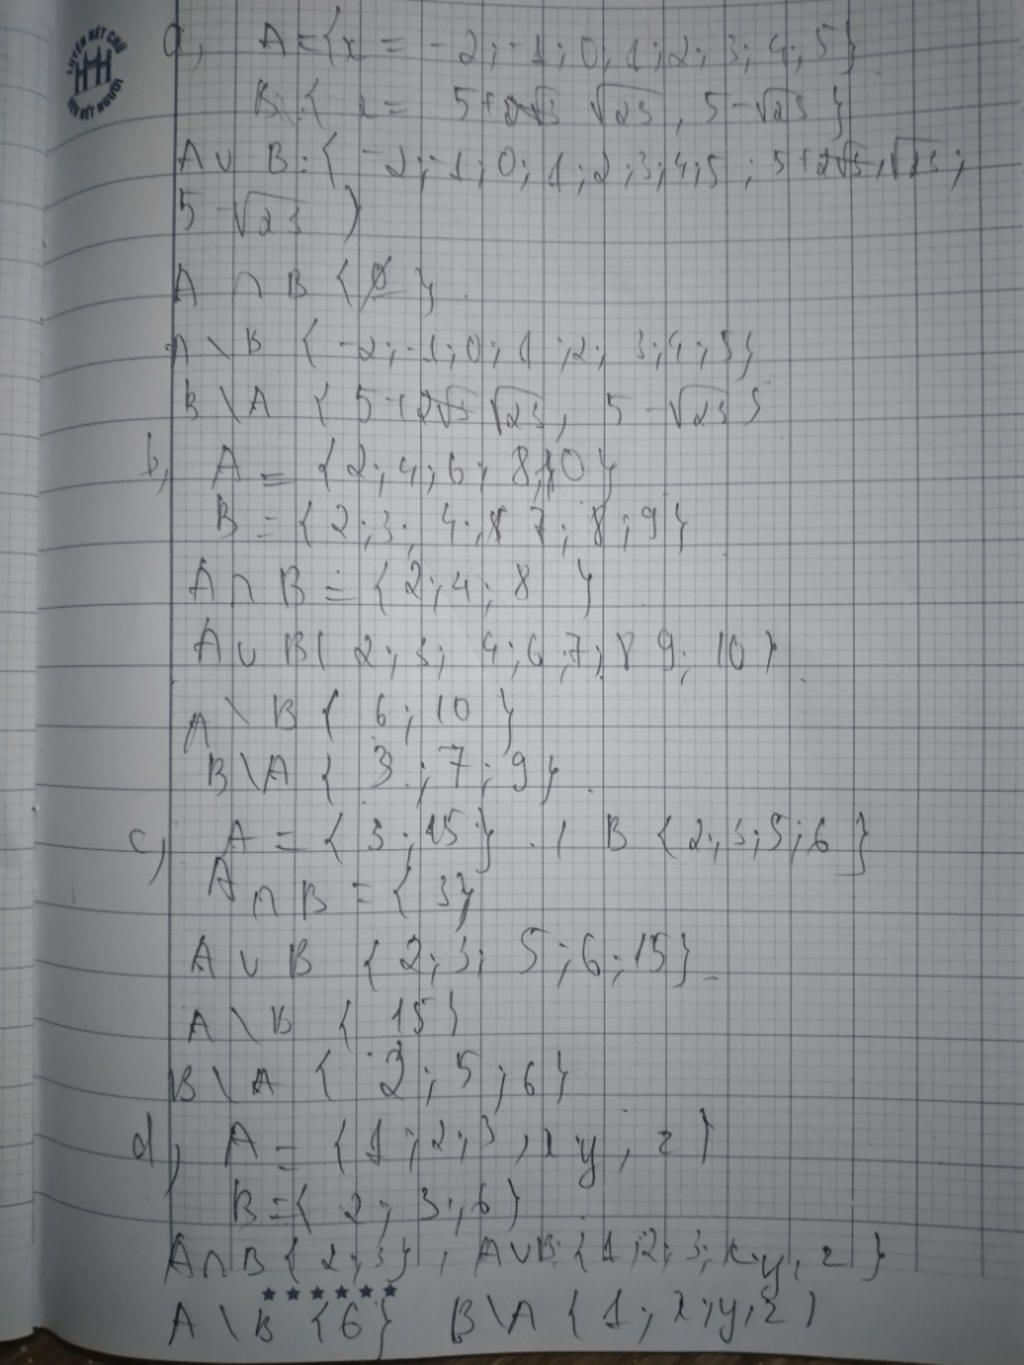 LUYỆN NÉT CHỮ
RÈN NẾT NGƯỜI
a, A = {x = -2; -1; 0; 1; 2; 3; 4; 5}
B: { x = 5+ √23, 5 - √23 }
A ∪ B: { -2; -1; 0; 1; 2; 3; 4; 5; 5 + 2√3, √23;
5 - √23 )
A ∩ B { ∅ }.
A \ B { -2; -1; 0; 1; 2; 3; 4; 5}
B \ A { 5+ √23, 5 - √23 }
b, A = {2; 4; 6; 8; 10}
B = {2; 3; 4; 7; 8; 9}
A ∩ B = {2; 4; 8 }
A ∪ B( 2; 3; 4; 6; 7; 8 9; 10 }
A \ B { 6; 10 }
B \ A { 3; 7; 9}.
c, A = { 3; 15}. , B {2; 3; 5; 6 }
A ∩ B = { 3}
A ∪ B {2; 3; 5; 6; 15}
A \ B { 15}
B \ A { 2; 5; 6}
d, A = {1; 2; 3, x y, z )
B = { 2; 3; 6}
A ∩ B { 2; 3}, A ∪ B: {1; 2; 3; x, y, z }
A \ B {6} B \ A {1; x; y, z )